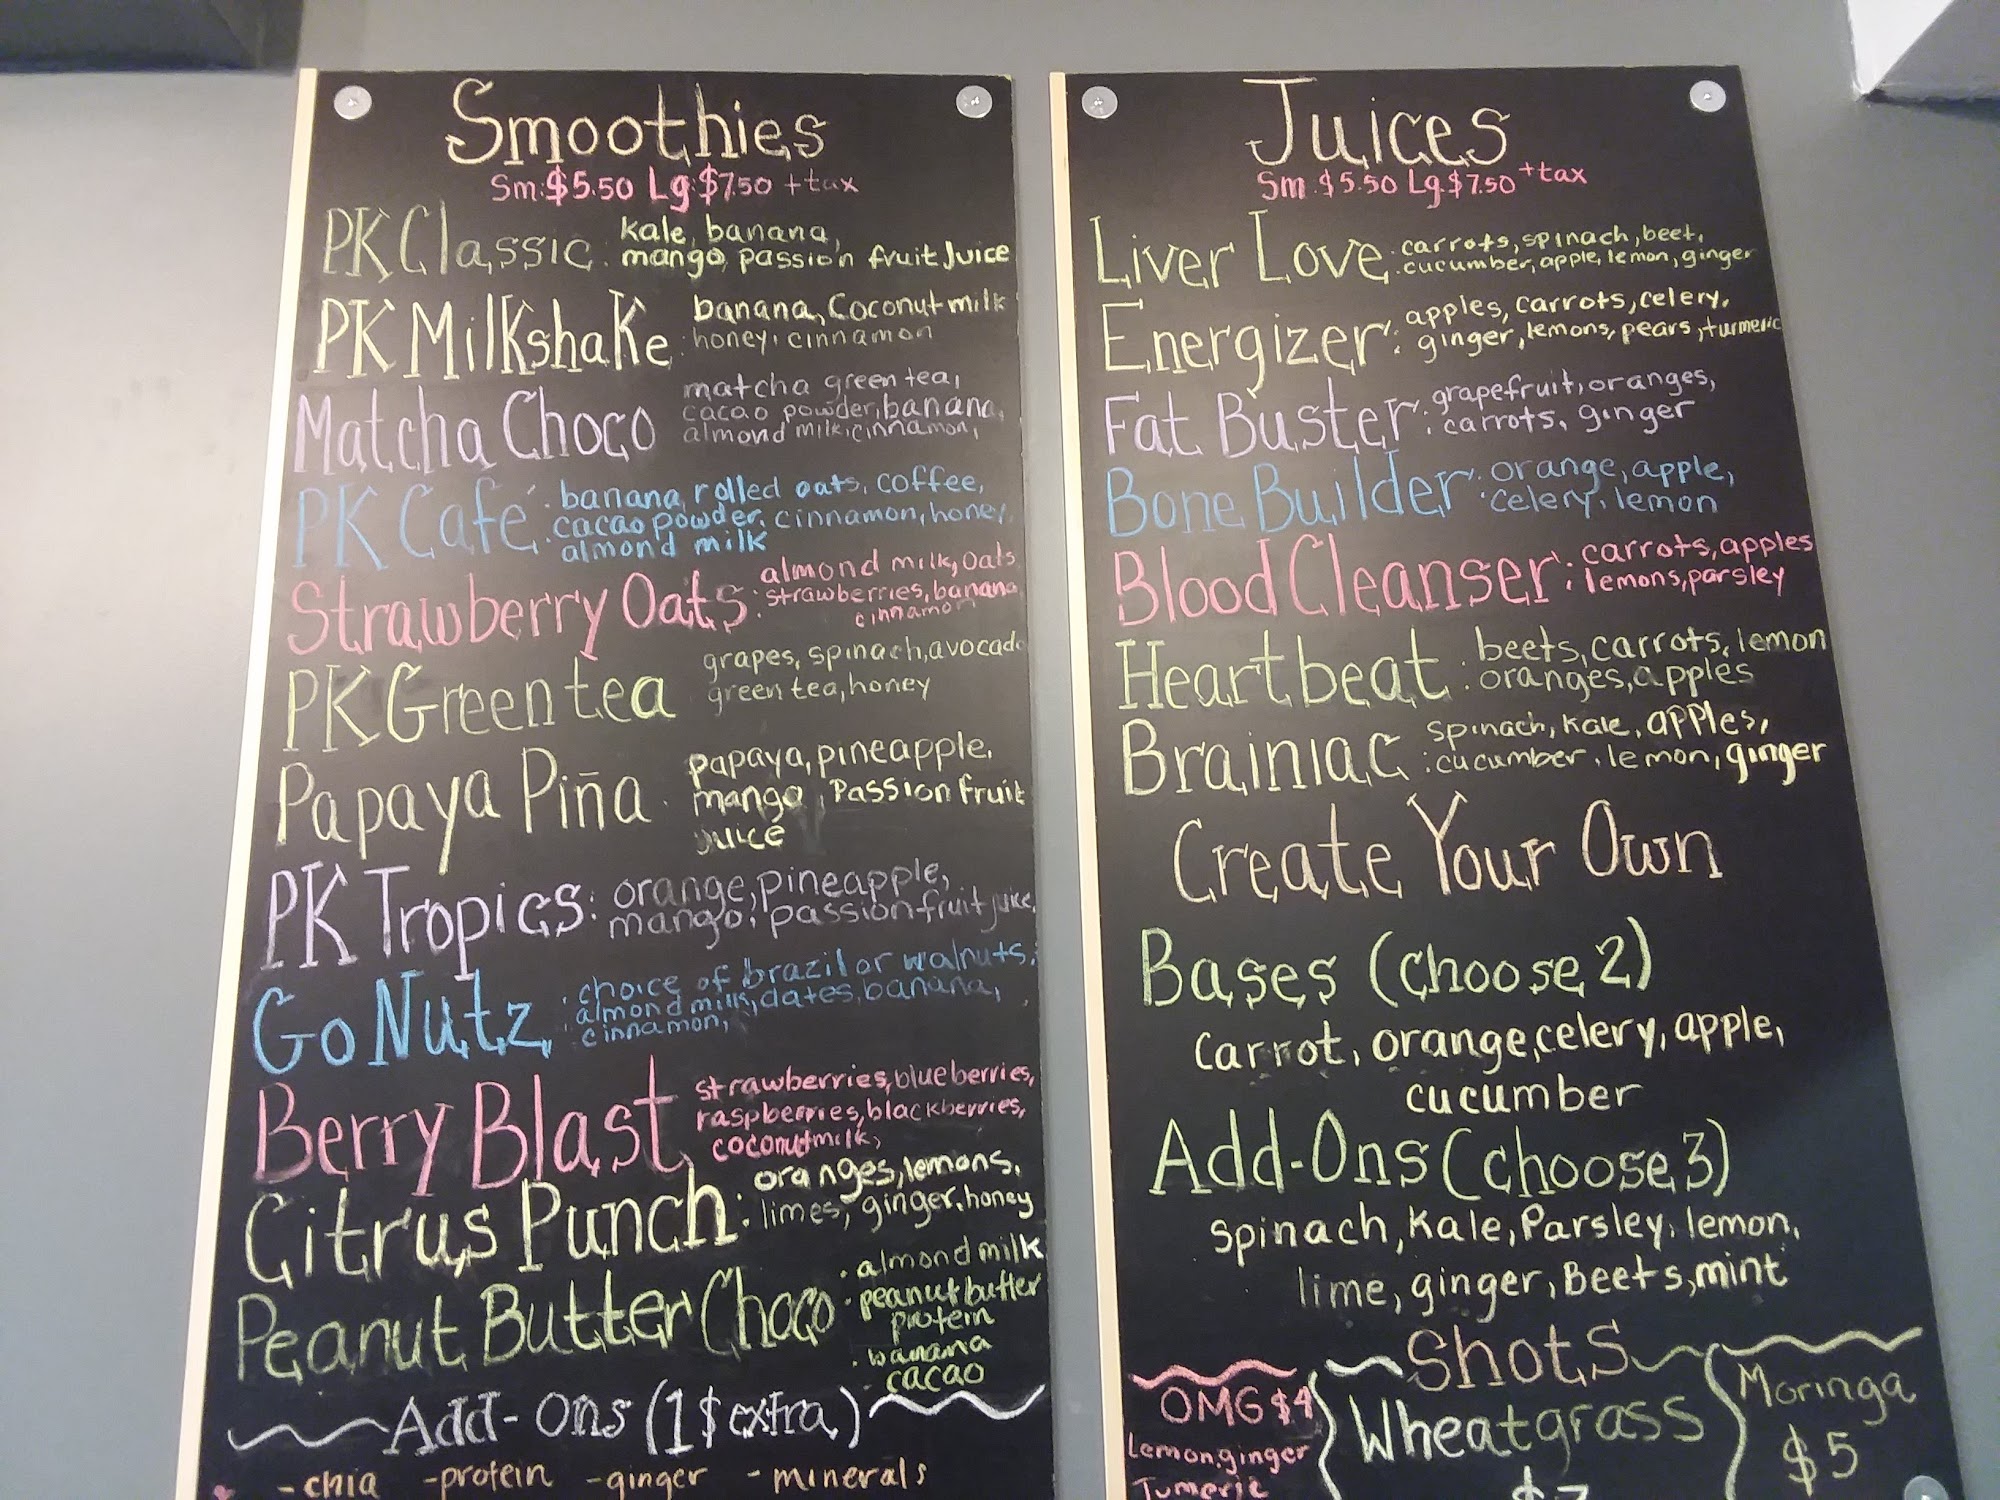 Smoothies
Sm:$5.50 Lg:$7.50 +tax
PK Classic: kale, banana,
mango, passion fruit Juice
PK MilKshaKe: banana, Coconut milk
honey, cinnamon
Matcha Choco matcha green tea,
cacao powder, banana,
almond milk, cinnamon,
PK Café: banana, rolled oats, coffee,
cacao powder, cinnamon, honey,
almond milk
Strawberry Oats: almond milk, oats
strawberries, banana
cinnamon
PK Green tea grapes, spinach, avocado
green tea, honey
Papaya Piña: papaya, pineapple,
mango, Passion fruit
juice
PK Tropics: orange, pineapple,
mango, passion fruit juice,
Go Nutz: choice of brazil or walnuts,
almond milk, dates, banana,
cinnamon,
Berry Blast strawberries, blueberries,
raspberries, blackberries,
coconut milk,
Citrus Punch: oranges, lemons,
limes, ginger, honey
Peanut Butter Choco: almond milk
peanut butter
protein
banana
cacao
Add-Ons (1$ extra)
-chia -protein -ginger -minerals
Juices
Sm $5.50 Lg $7.50 +tax
Liver Love: carrots, spinach, beet,
cucumber, apple, lemon, ginger
Energizer: apples, carrots, celery,
ginger, lemons, pears, turmeric
Fat Buster: grapefruit, oranges,
carrots, ginger
Bone Builder: orange, apple,
celery, lemon
Blood Cleanser: carrots, apples
lemons, parsley
Heartbeat: beets, carrots, lemon
oranges, apples
Brainiac: spinach, kale, apples,
cucumber, lemon, ginger
Create Your Own
Bases (choose 2)
carrot, orange, celery, apple,
cucumber
Add-Ons (choose 3)
spinach, kale, Parsley, lemon,
lime, ginger, Beets, mint
Shots
OMG $4
Lemon, ginger
Tumeric
Wheatgrass
Moringa
$5